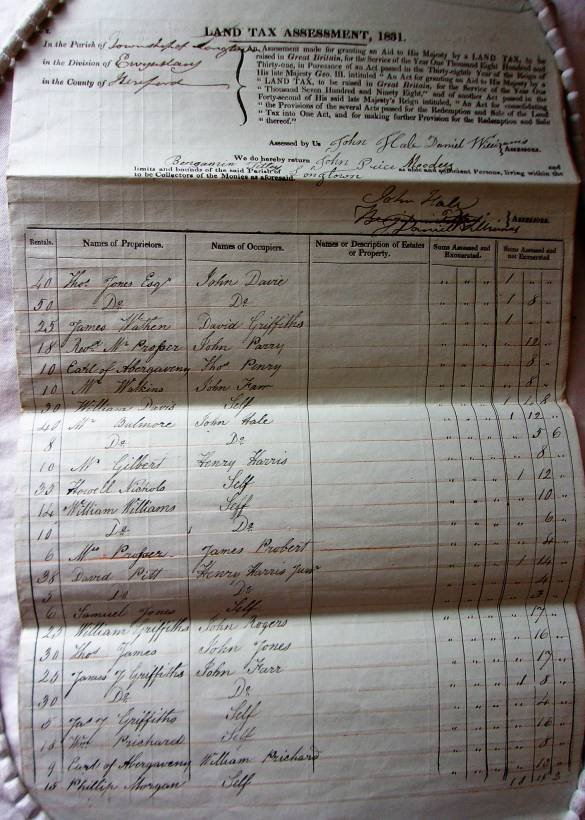 LAND TAX ASSESSMENT, 1831.
In the Parish of Township of
in the Division of Ewyaslacy
in the County of Hereford
An Assessment made for granting an Aid to His Majesty by a LAND TAX, to be
raised in Great Britain, for the Service of the Year One Thousand Eight Hundred and
Thirty-one, in Pursuance of an Act passed in the Thirty-eighth Year of the Reign of
His late Majesty Geo. III. intituled "An Act for granting an Aid to His Majesty by a
"LAND TAX, to be raised in Great Britain, for the Service of the Year One
"Thousand Seven Hundred and Ninety Eight," and of another Act passed in the
Forty-second of His said late Majesty's Reign, intituled, "An Act for consolidating
"the Provisions of the several Acts passed for the Redemption and Sale of the Land
"Tax into One Act, and for making further Provision for the Redemption and Sale
"thereof."
Assessed by Us John Hale Daniel Williams } ASSESSORS.
We do hereby return John Price and
Benjamin as able and sufficient Persons, living within the
limits and bounds of the said Parish of Longtown
to be Collectors of the Monies as aforesaid.
John Hale
Daniel Williams } ASSESSORS.
Rentals. Names of Proprietors. Names of Occupiers. Names or Description of Estates or Property. Sums Assessed and Exonerated. Sums Assessed and not Exonerated.
40 Thos Jones Esqr John Davie 1 " "
50 Do Do 1 8 "
25 James Wathen David Griffiths 1 " "
18 Revd Mr Prosser John Parry " 12 "
10 Earl of Abergaveny Thos Penry " 8 "
10 Mr Watkins John " 8 "
30 William Davis Self 1 4 8
40 Mr Bulmore John Hale 1 12 "
8 Do Do " 5 6
10 Mr Gilbert Henry Harris " 8 "
35 Howell Nichols Self 1 12 "
14 William Williams Self " 10 "
10 Do Do " 6 "
6 Mrs Prosser James Probert " 4 "
38 David Pitt Henry Harris Junr 1 14 "
5 Do Do " 4 "
6 Samuel Jones Self " 3 "
25 William Griffiths John Rogers " 17 "
30 Thos James John Jones " 16 "
20 James Griffiths John Farr " 17 "
30 Do Do 1 8 "
Griffiths Self " 4 "
Prichard Self " 16 "
9 Earl of Abergaveny William Prichard " 8 "
15 Phillip Morgan Self " 10 "